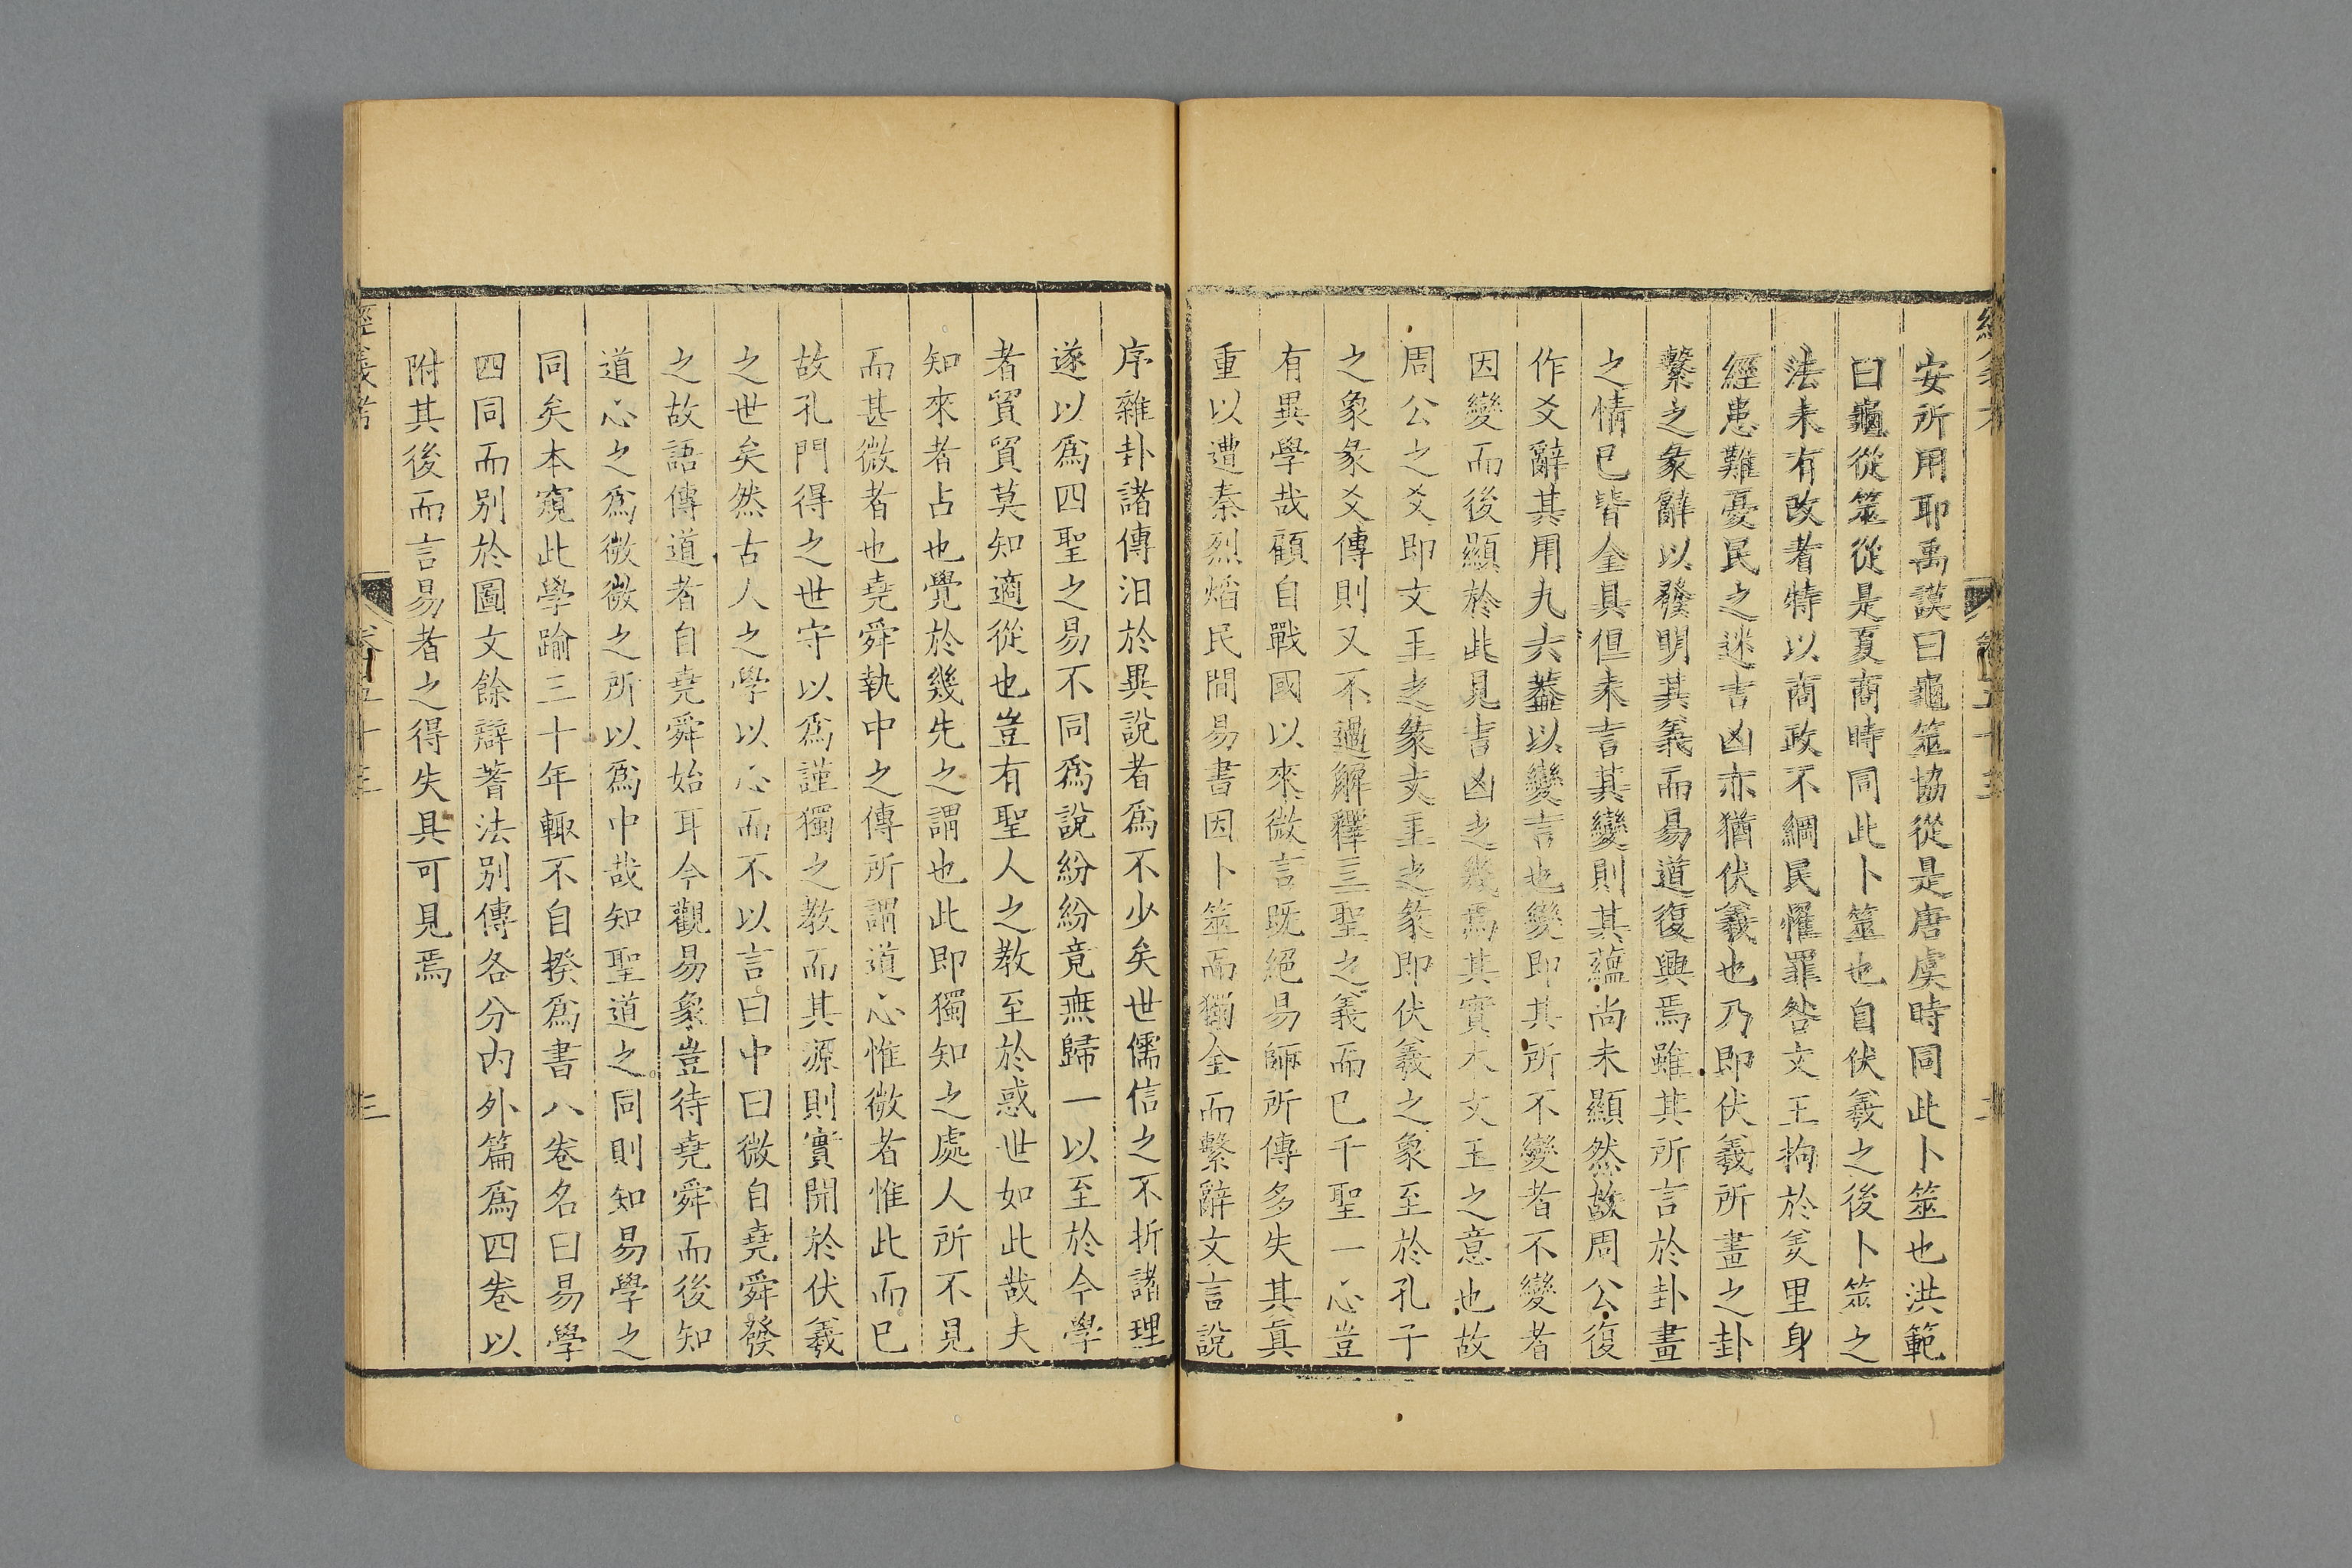 安所用耶禹謨曰龜筮協從是唐虞時同此卜筮也洪範
曰龜從筮從是夏商時同此卜筮也自伏羲之後卜筮之
法未有改者特以商政不綱民罹罪咎文王拘於羑里身
經患難憂民之迷吉凶亦猶伏羲也乃即伏羲所畫之卦
繫之彖辭以發明其義而易道復興焉雖其所言於卦畫
之情已皆全具但未言其變則其蘊尚未顯然故周公復
作爻辭其用九六葢以變言也變即其所不變者不變者
因變而後顯於此見吉凶之幾焉其實本文王之意也故
周公之爻即文王之彖文王之彖即伏羲之象至於孔子
之象彖爻傳則又不過解釋三聖之義而已千聖一心豈
有異學哉顧自戰國以來微言既絕易師所傳多失其真
重以遭秦烈熖民間易書因卜筮而獨全而繫辭文言說
序雜卦諸傳汨於異說者爲不少矣世儒信之不折諸理
遂以爲四聖之易不同爲說紛紛竟無歸一以至於今學
者貿貿莫知適從也豈有聖人之教至於惑世如此哉夫
知來者占也覺於幾先之謂也此即獨知之處人所不見
而甚微者也堯舜執中之傳所謂道心惟微者惟此而已
故孔門得之世守以爲謹獨之教而其源則實開於伏羲
之世矣然古人之學以心而不以言曰中曰微自堯舜發
之故語傳道者自堯舜始耳今觀易象豈待堯舜而後知
道心之爲微微之所以爲中哉知聖道之同則知易學之
同矣本窺此學踰三十年輙不自揆爲書八卷名曰易學
四同而别於圖文餘辯蓍法别傳各分內外篇爲四卷以
附其後而言易者之得失具可見焉
經義考
卷五十三
三